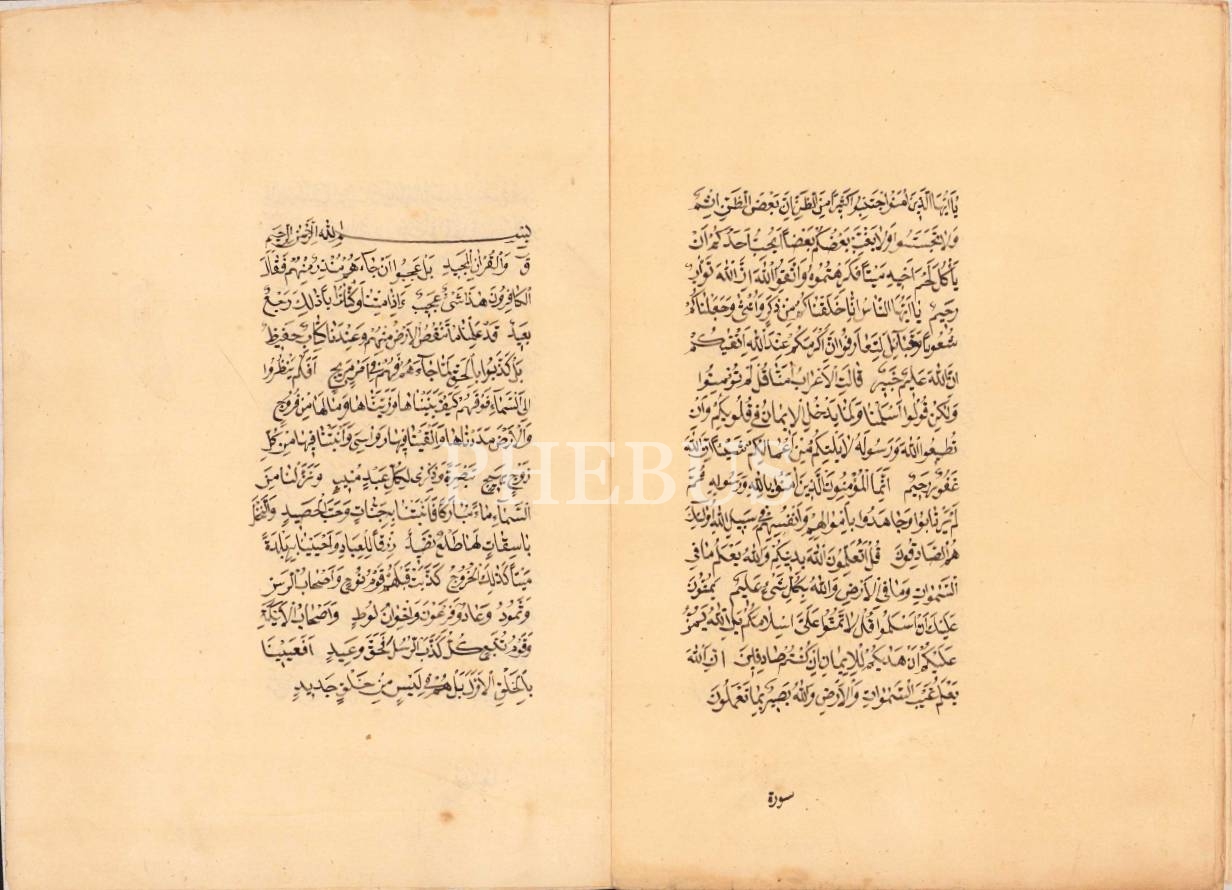 يا ايها الذين امنوا اجتنبوا كثيرا من الظن ان بعض الظن اثم
ولا تجسسوا ولا يغتب بعضكم بعضا ايحب احدكم ان
ياكل لحم اخيه ميتا فكرهتموه واتقوا الله ان الله تواب
رحيم يا ايها الناس انا خلقناكم من ذكر وانثى وجعلناكم
شعوبا وقبائل لتعارفوا ان اكرمكم عند الله اتقيكم
ان الله عليم خبير قالت الاعراب امنا قل لم تؤمنوا
ولكن قولوا اسلمنا ولما يدخل الايمان في قلوبكم وان
تطيعوا الله ورسوله لا يلتكم من اعمالكم شيئا ان الله
غفور رحيم انما المؤمنون الذين امنوا بالله ورسوله ثم
لم يرتابوا وجاهدوا باموالهم وانفسهم في سبيل الله اولئك
هم الصادقون قل اتعلمون الله بدينكم والله يعلم ما في
السموات وما في الارض والله بكل شيء عليم يمنون
عليك ان اسلموا قل لا تمنوا على اسلامكم بل الله يمن
عليكم ان هديكم للايمان ان كنتم صادقين ان الله
يعلم غيب السموات والارض والله بصير بما تعملون
سورة
بسم الله الرحمن الرحيم
ق والقران المجيد بل عجبوا ان جاءهم منذر منهم فقال
الكافرون هذا شيء عجيب ءاذا متنا وكنا ترابا ذلك رجع
بعيد قد علمنا ما تنقص الارض منهم وعندنا كتاب حفيظ
بل كذبوا بالحق لما جاءهم فهم في امر مريج افلم ينظروا
الى السماء فوقهم كيف بنيناها وزيناها وما لها من فروج
والارض مددناها والقينا فيها رواسي وانبتنا فيها من كل
زوج بهيج تبصرة وذكرى لكل عبد منيب ونزلنا من
السماء ماء مباركا فانبتنا به جنات وحب الحصيد والنخل
باسقات لها طلع نضيد رزقا للعباد واحيينا به بلدة
ميتا كذلك الخروج كذبت قبلهم قوم نوح واصحاب الرس
وثمود وعاد وفرعون واخوان لوط واصحاب الايكة
وقوم تبع كل كذب الرسل فحق وعيد افعيينا
بالخلق الاول بل هم في لبس من خلق جديد
PHEBUS